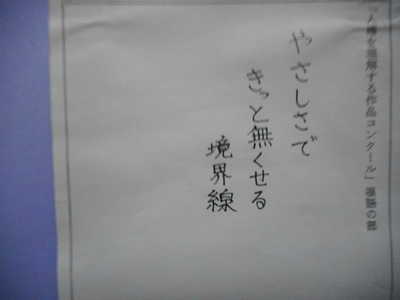 「人権を理解する作品コンクール」標語の部
やさしさで
きっと無くせる
境界線